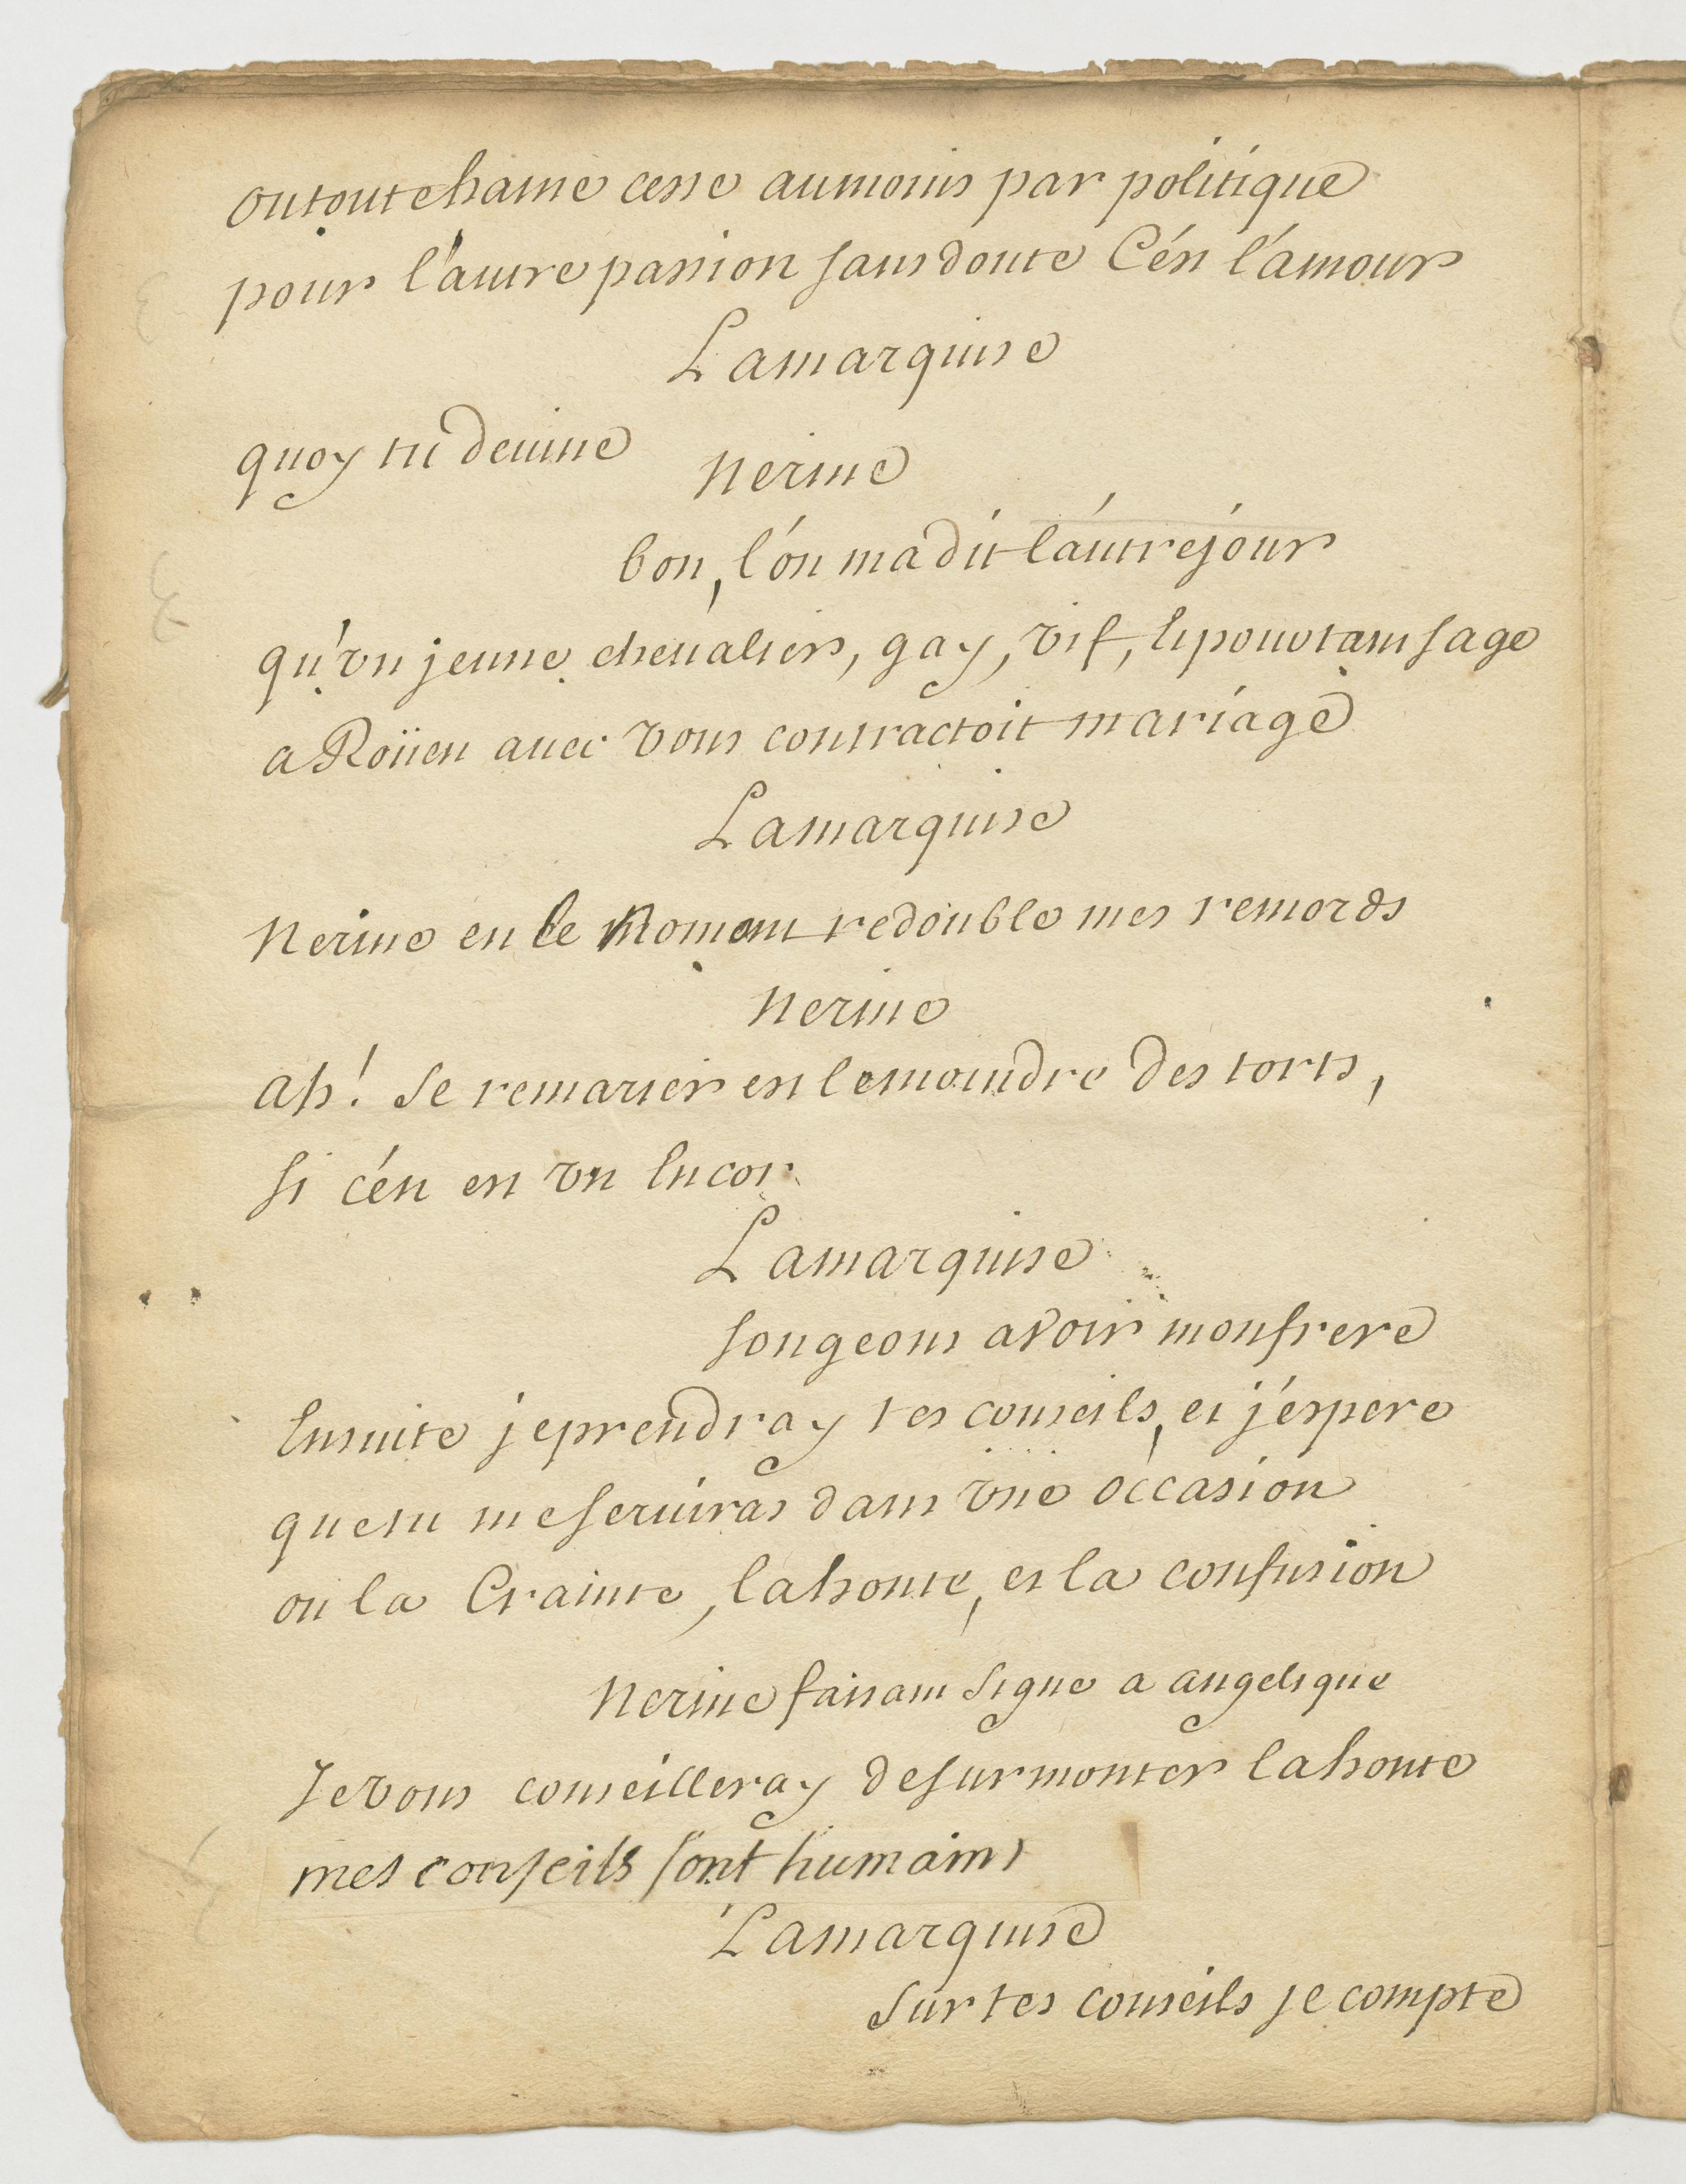 ou toute haine cesse au moins par politique
pour l'autre passion sans doute C'ést l'ámour
La marquise
quoy tu deuine
Nerine
bon, l'ón ma dit l'áutre jour
qu'vn jeune cheualier, gay, vif, et pourtant sage
a Roüen auec vous contractoit mariage
La marquise
Nerine en ce moment redouble mes remords
Nerine
ah! Se remarier est le moindre des torts,
si c'én est vn encor
La marquise
songeons a voir mon frere
Ensuite je prendray tes conseils, et j'éspere
que tu me seruiras dans vne occasion
ou la Crainte, la honte, et la confusion
Nerine faisant Signe a angelique
Je vous conseilleray de surmonter la honte
mes conseils sont humains
La marquise
Sur tes conseils je compte